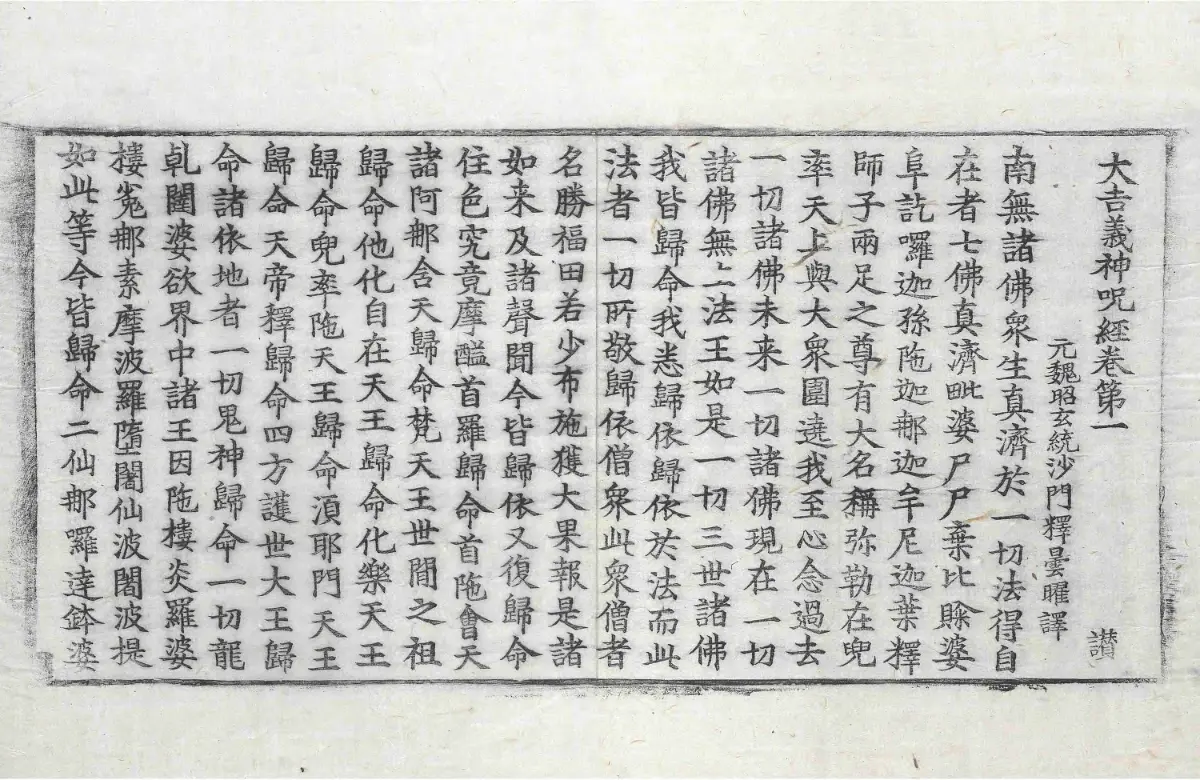 大吉義神呪經卷第一
讃
元魏昭玄統沙門釋曇曜譯
南無諸佛衆生真濟於一切法得自
在者七佛真濟毗婆尸尸棄比賖婆
阜訖囉迦孫陁迦那迦牟尼迦葉釋
師子兩足之尊有大名稱弥勒在兜
率天上與大衆圍遶我至心念過去
一切諸佛未来一切諸佛現在一切
諸佛無上法王如是一切三世諸佛
我皆歸命我悉歸依歸依於法而此
法者一切所敬歸依僧衆此衆僧者
名勝福田若少布施獲大果報是諸
如来及諸聲聞今皆歸依又復歸命
住色究竟摩醯首羅歸命首陁會天
諸阿那含天歸命梵天王世間之祖
歸命他化自在天王歸命化樂天王
歸命兜率陁天王歸命湏耶門天王
歸命天帝釋歸命四方護世大王歸
命諸依地者一切鬼神歸命一切龍
乹闥婆欲界中諸王因陁樓炎羅婆
樓寃那素摩波羅墮闍仙波闍波提
如此等今皆歸命二仙那囉達鉢婆